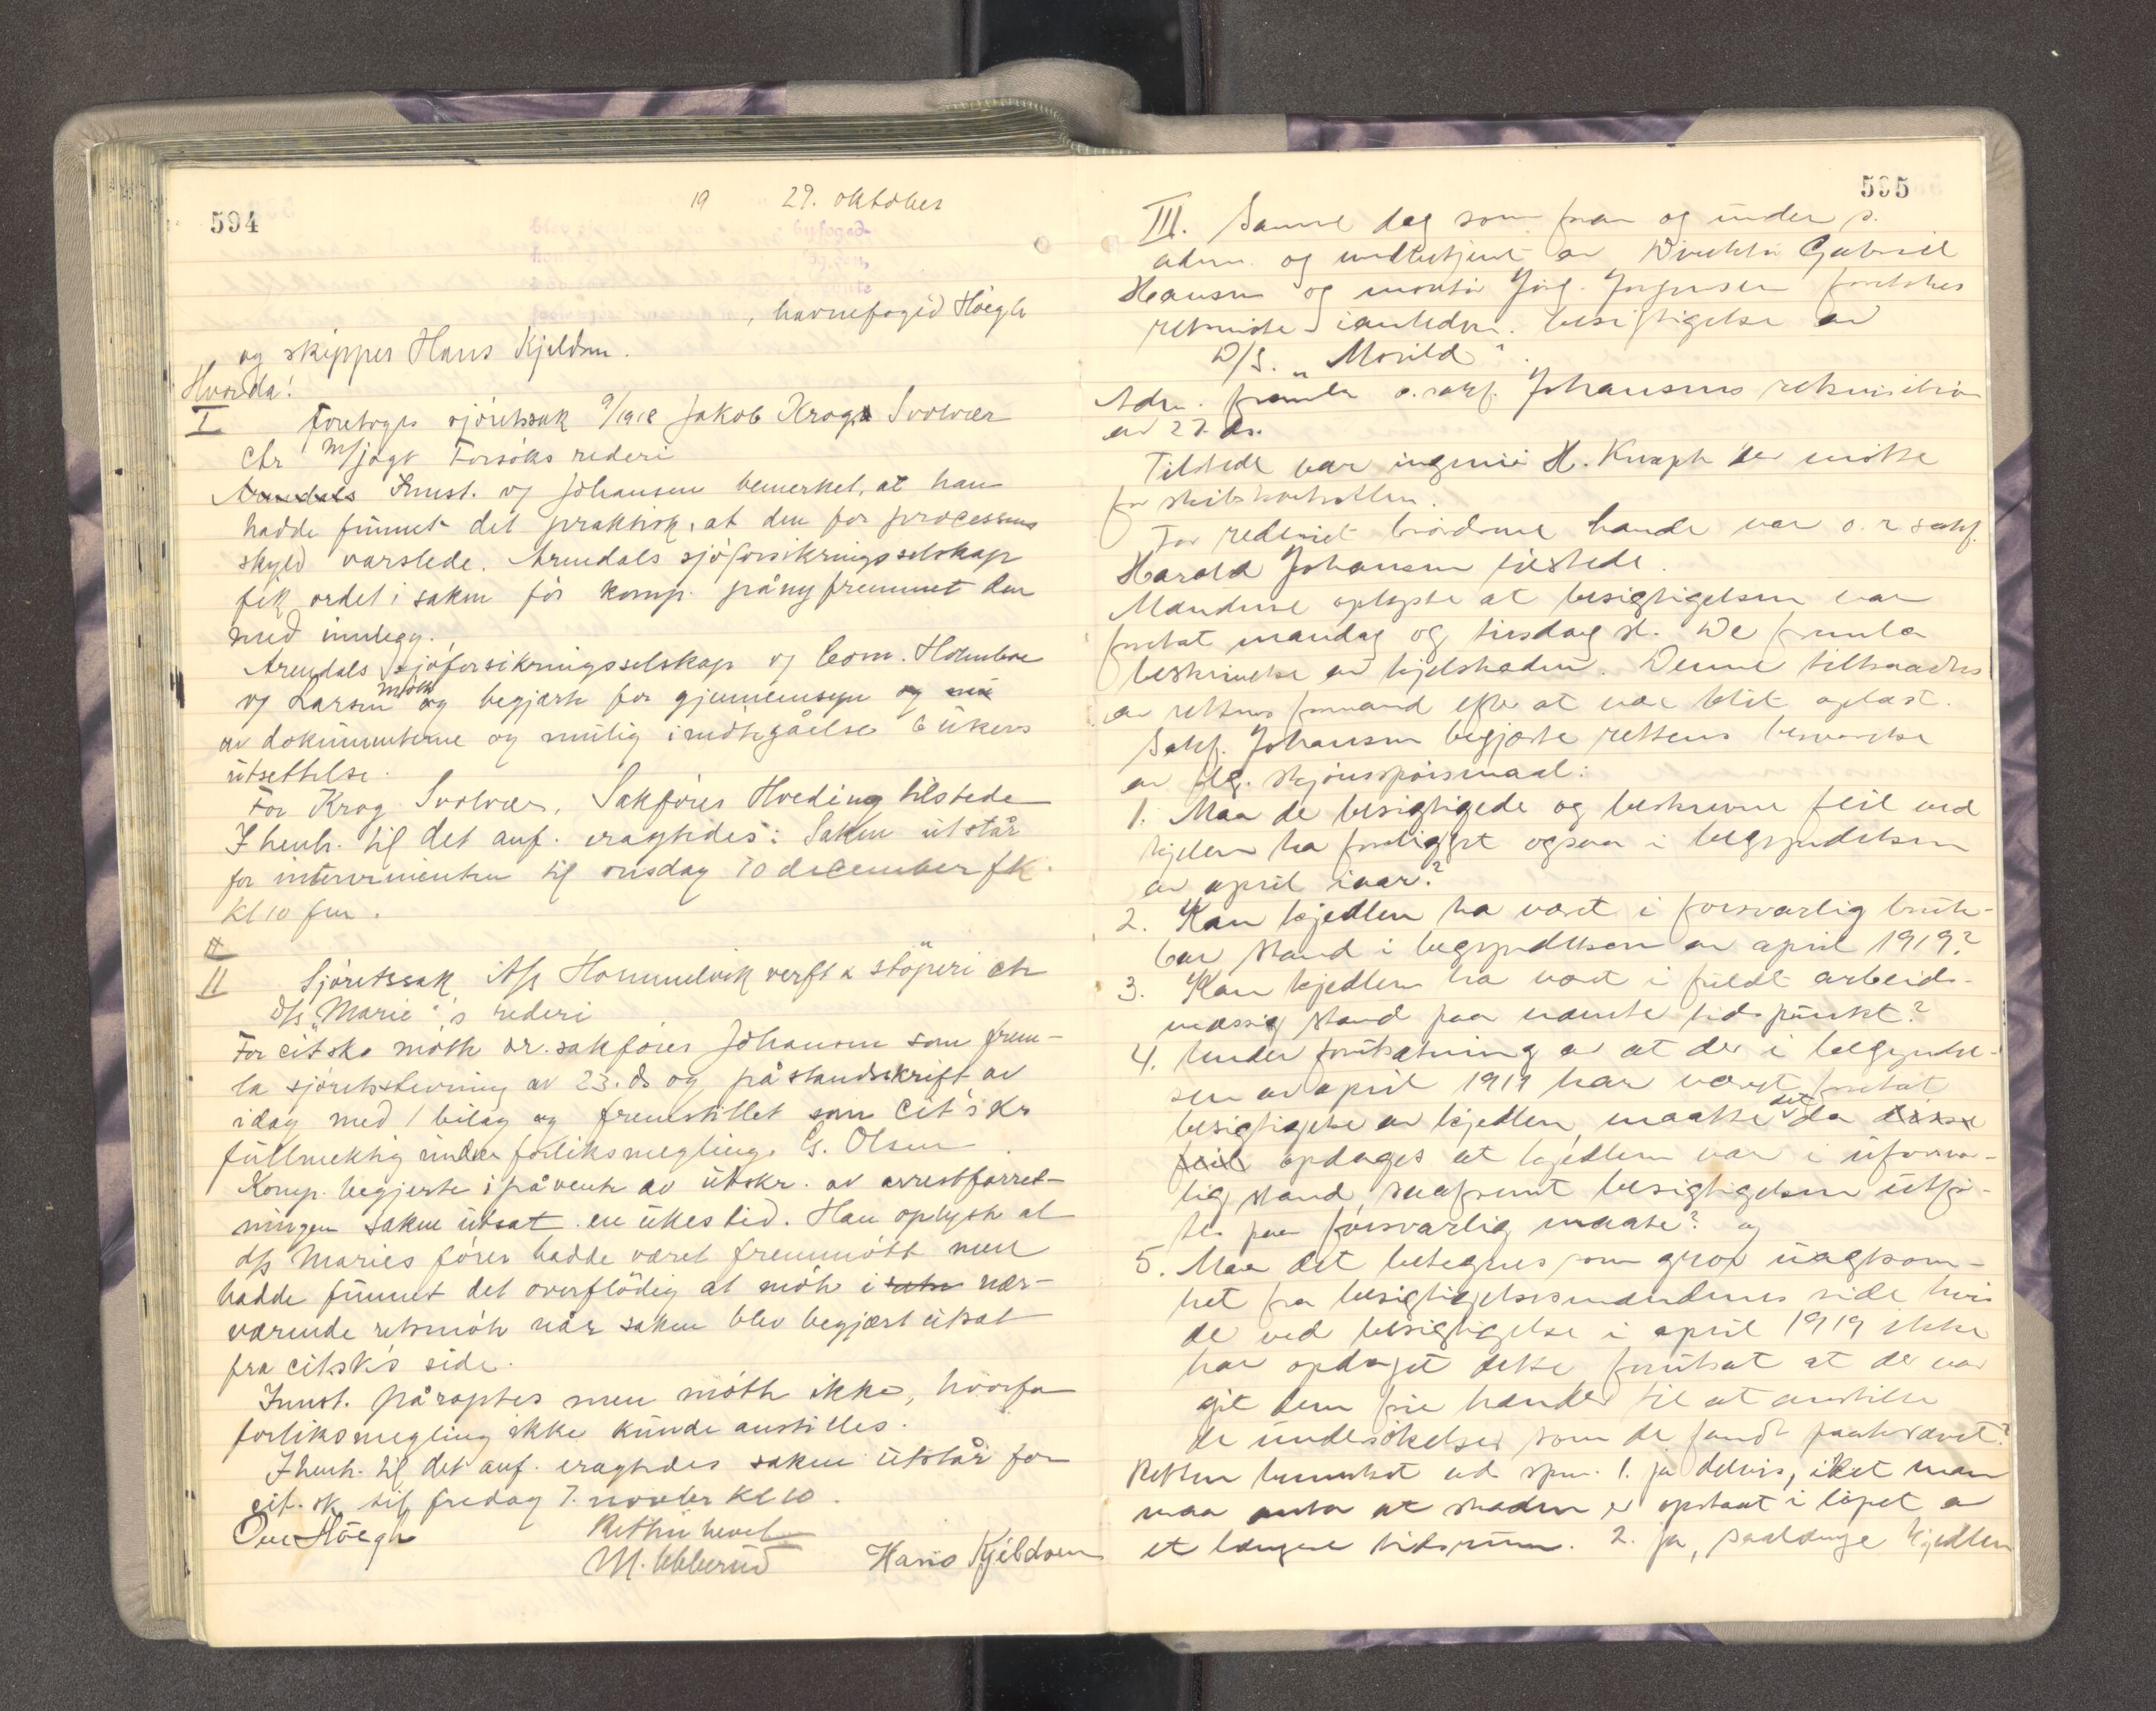 594
19 29. oktober
, havnefogd Höegh
og skipper Hans Kjeldsen.
Hvorda!
I Foretoges sjöretssak 9/1918 Jakob Krog, Svolvær
ctr M/jagt Forsöks rederi
Arendals Innst. v/ Johansen bemerket, at han
hadde funnet det praktisk, at den for processens
skyld varslede, Arendals sjöforsikringsselskap
fik ordet i saken för komp. pånÿ fremmet den
med innlegg.
Arendals sjöforsikringsselskap v/ Com. Holmboe
v/ Larsen mötte og begjærte for gjennemsyn og
av dokumenterne og mulig imötegåelse 6 ukers
utsettelse.
For Krog Svolvær, Sakförer Hveding tilstede
I henh. til det anf. eragtedes: Saken utstår
for intervenienten til onsdag 10 december fk.
Kl 10 fm.
II
II Sjöretssak A/s Hommelvik verft & stöperi ctr
d/s "Marie"'s rederi
For citske mötte or. sakförer Johansen som frem-
la sjöretsstevning av 23. ds og påstandsskrift av
idag med 1 bilag og fremstillet som cit's kr
fullmektig under forliksmegling G. Olsen
Komp. begjerte i påvente av utskr. av arrestforret-
ningen saken utsat en ukes tid. Han oplyste at
d/s Maries förer hadde været fremmött men
hadde funnet det overflödig at möte i nær-
værende retsmöte når saken blev begjært utsat
fra citsk's side.
Innst. påroptes men mötte ikke, hvorfor
forliksmegling ikke kunde anstilles.
I henh. til det anf. eragtedes saken utstår for
cit. sk. til fredag 7. novbr kl 10.
Retten hevet
Ove Höegh M. Ubberud Hans Kjeldsen
595
III. Samme dag som foran og under s.
adm. og meddeltjent av Direktör Gabriel
Hansen og montör Jörg. Jörgensen foretokes
retsmöte i anledn. besigtigelse av
D/S. "Morild".
Adm. fremla o.sakf. Johansens rekvisition
av 27. ds.
Tilstede var ingeniör H. Knaph der mötte
for skibskontrollen.
For rederiet brödrene Lande var o. r sakf.
Harald Johansen tilstede.
Mændene oplyste at besigtigelsen var
foretat mandag og tirsdag sl. De fremla
beskrivelse av kjelskaden. Denne tiltraadtes
av rettens formand efter at være blit oplæst.
Sakf. Johansen begjærte rettens besvarelse
av flg. skjönsspörsmaal:
1. Maa de besigtigede og beskrevne feil ved
kjelen ha foreligget ogsaa i begyndelsen
av april iaar?
2. Kan kjedlen ha været i forsvarlig bruk-
bar stand i begyndelsen av april 1919?
3. Kan kjedlen ha været i fuldt arbeids-
mæssig stand paa nævnte tidspunkt?
4. Under forutsætning av at der i begyndel-
sen av april 1919 har været foretat
besigtigelse av kjedlen, maatte det da disse
feil opdages at kjedlen var i uforsva-
lig stand, saafremt besigtigelsen utför-
tes paa forsvarlig maate? og
5. Maa det betegnes som grov uagtsom-
het fra besigtigelsesmændenes side hvis
de ved besigtigelse i april 1919 ikke
har opdaget dette forutsat at de var
git dem frie hænder til at anstille
de undersökelser som de fandt paakrævet?
Retten bemerket ad spm. 1. ja delvis, idet man
maa anta at skaden er opstaat i löpet av
et længere tidsrum. 2. ja, saalænge kjedlen